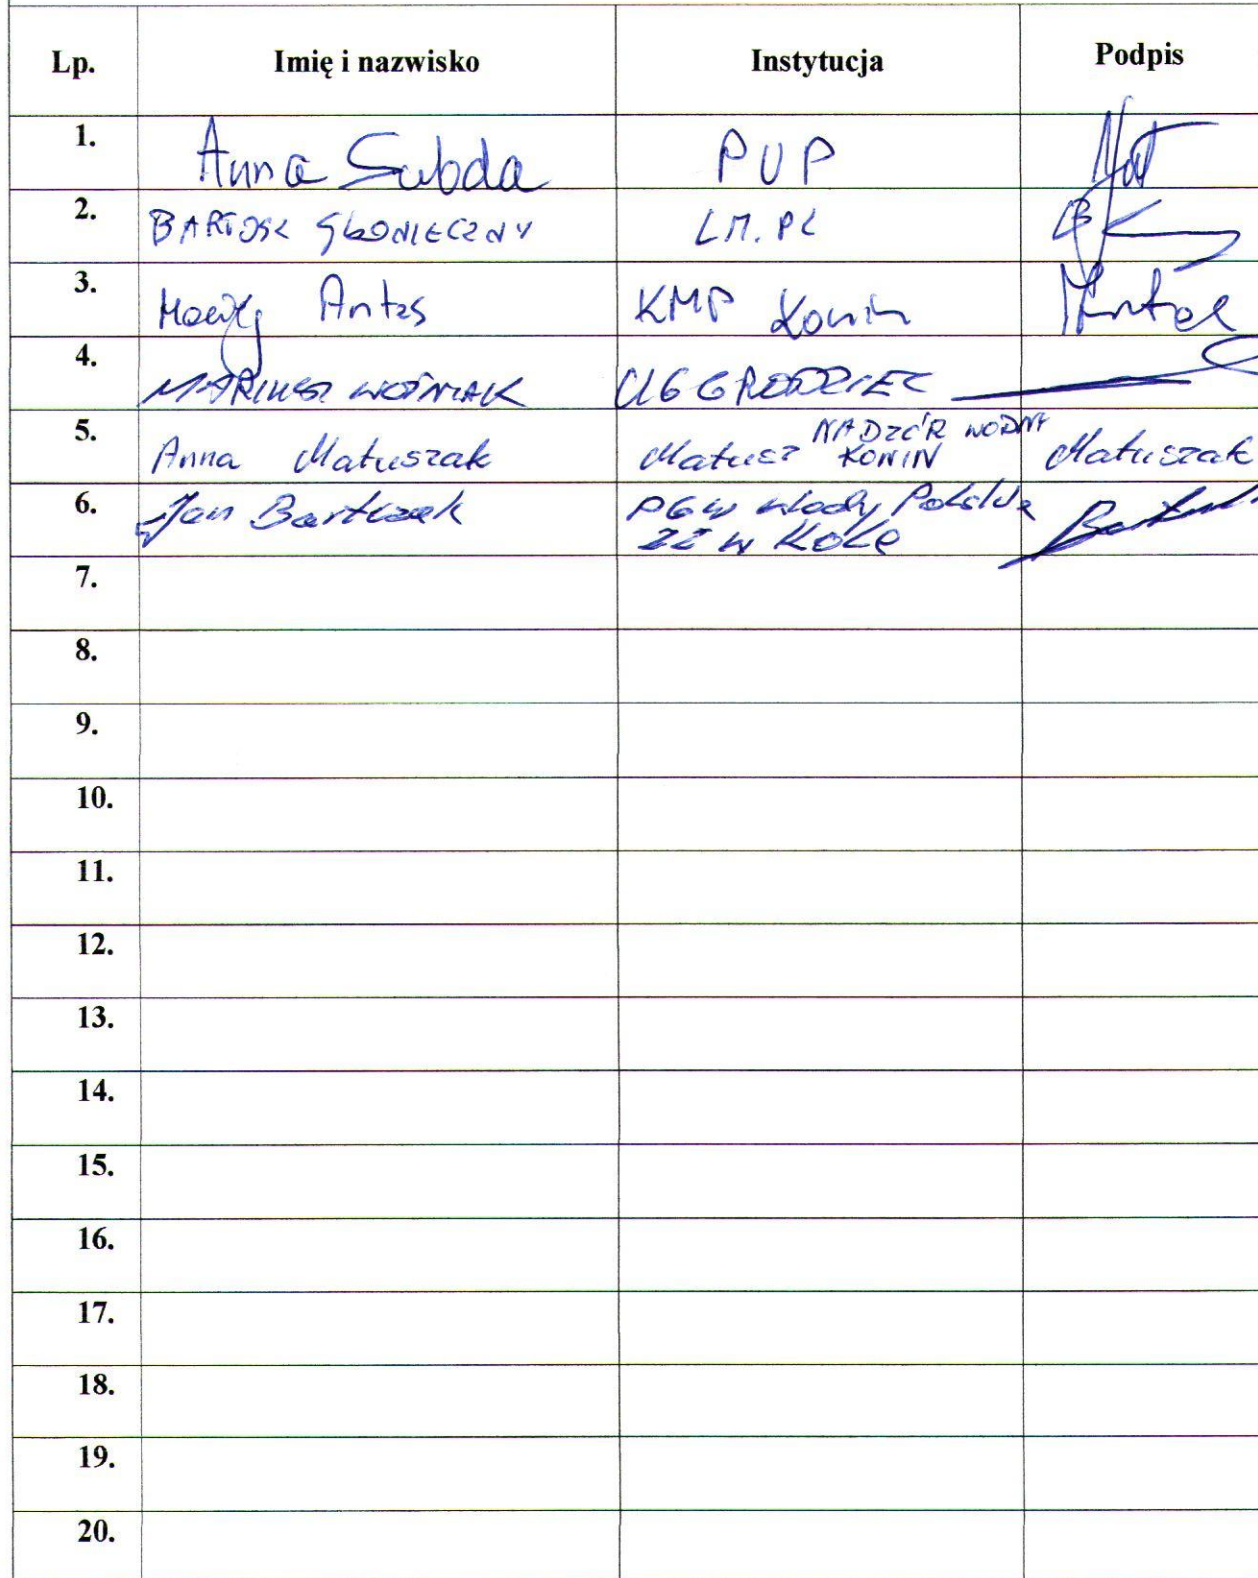 Lp. Imię i nazwisko Instytucja Podpis
1. Anna PUP
2. BARTOSZ LM.PL
3. Maciej Antas KMP Konin
4. MARIUSZ WOŹNIAK UG GRODZIEC
5. Anna Matuszak Matusz NADZÓR WODNY KONIN Matuszak
6. Jan Bartczak PGW Wody Polskie
ZZ w Kole
7.
8.
9.
10.
11.
12.
13.
14.
15.
16.
17.
18.
19.
20.